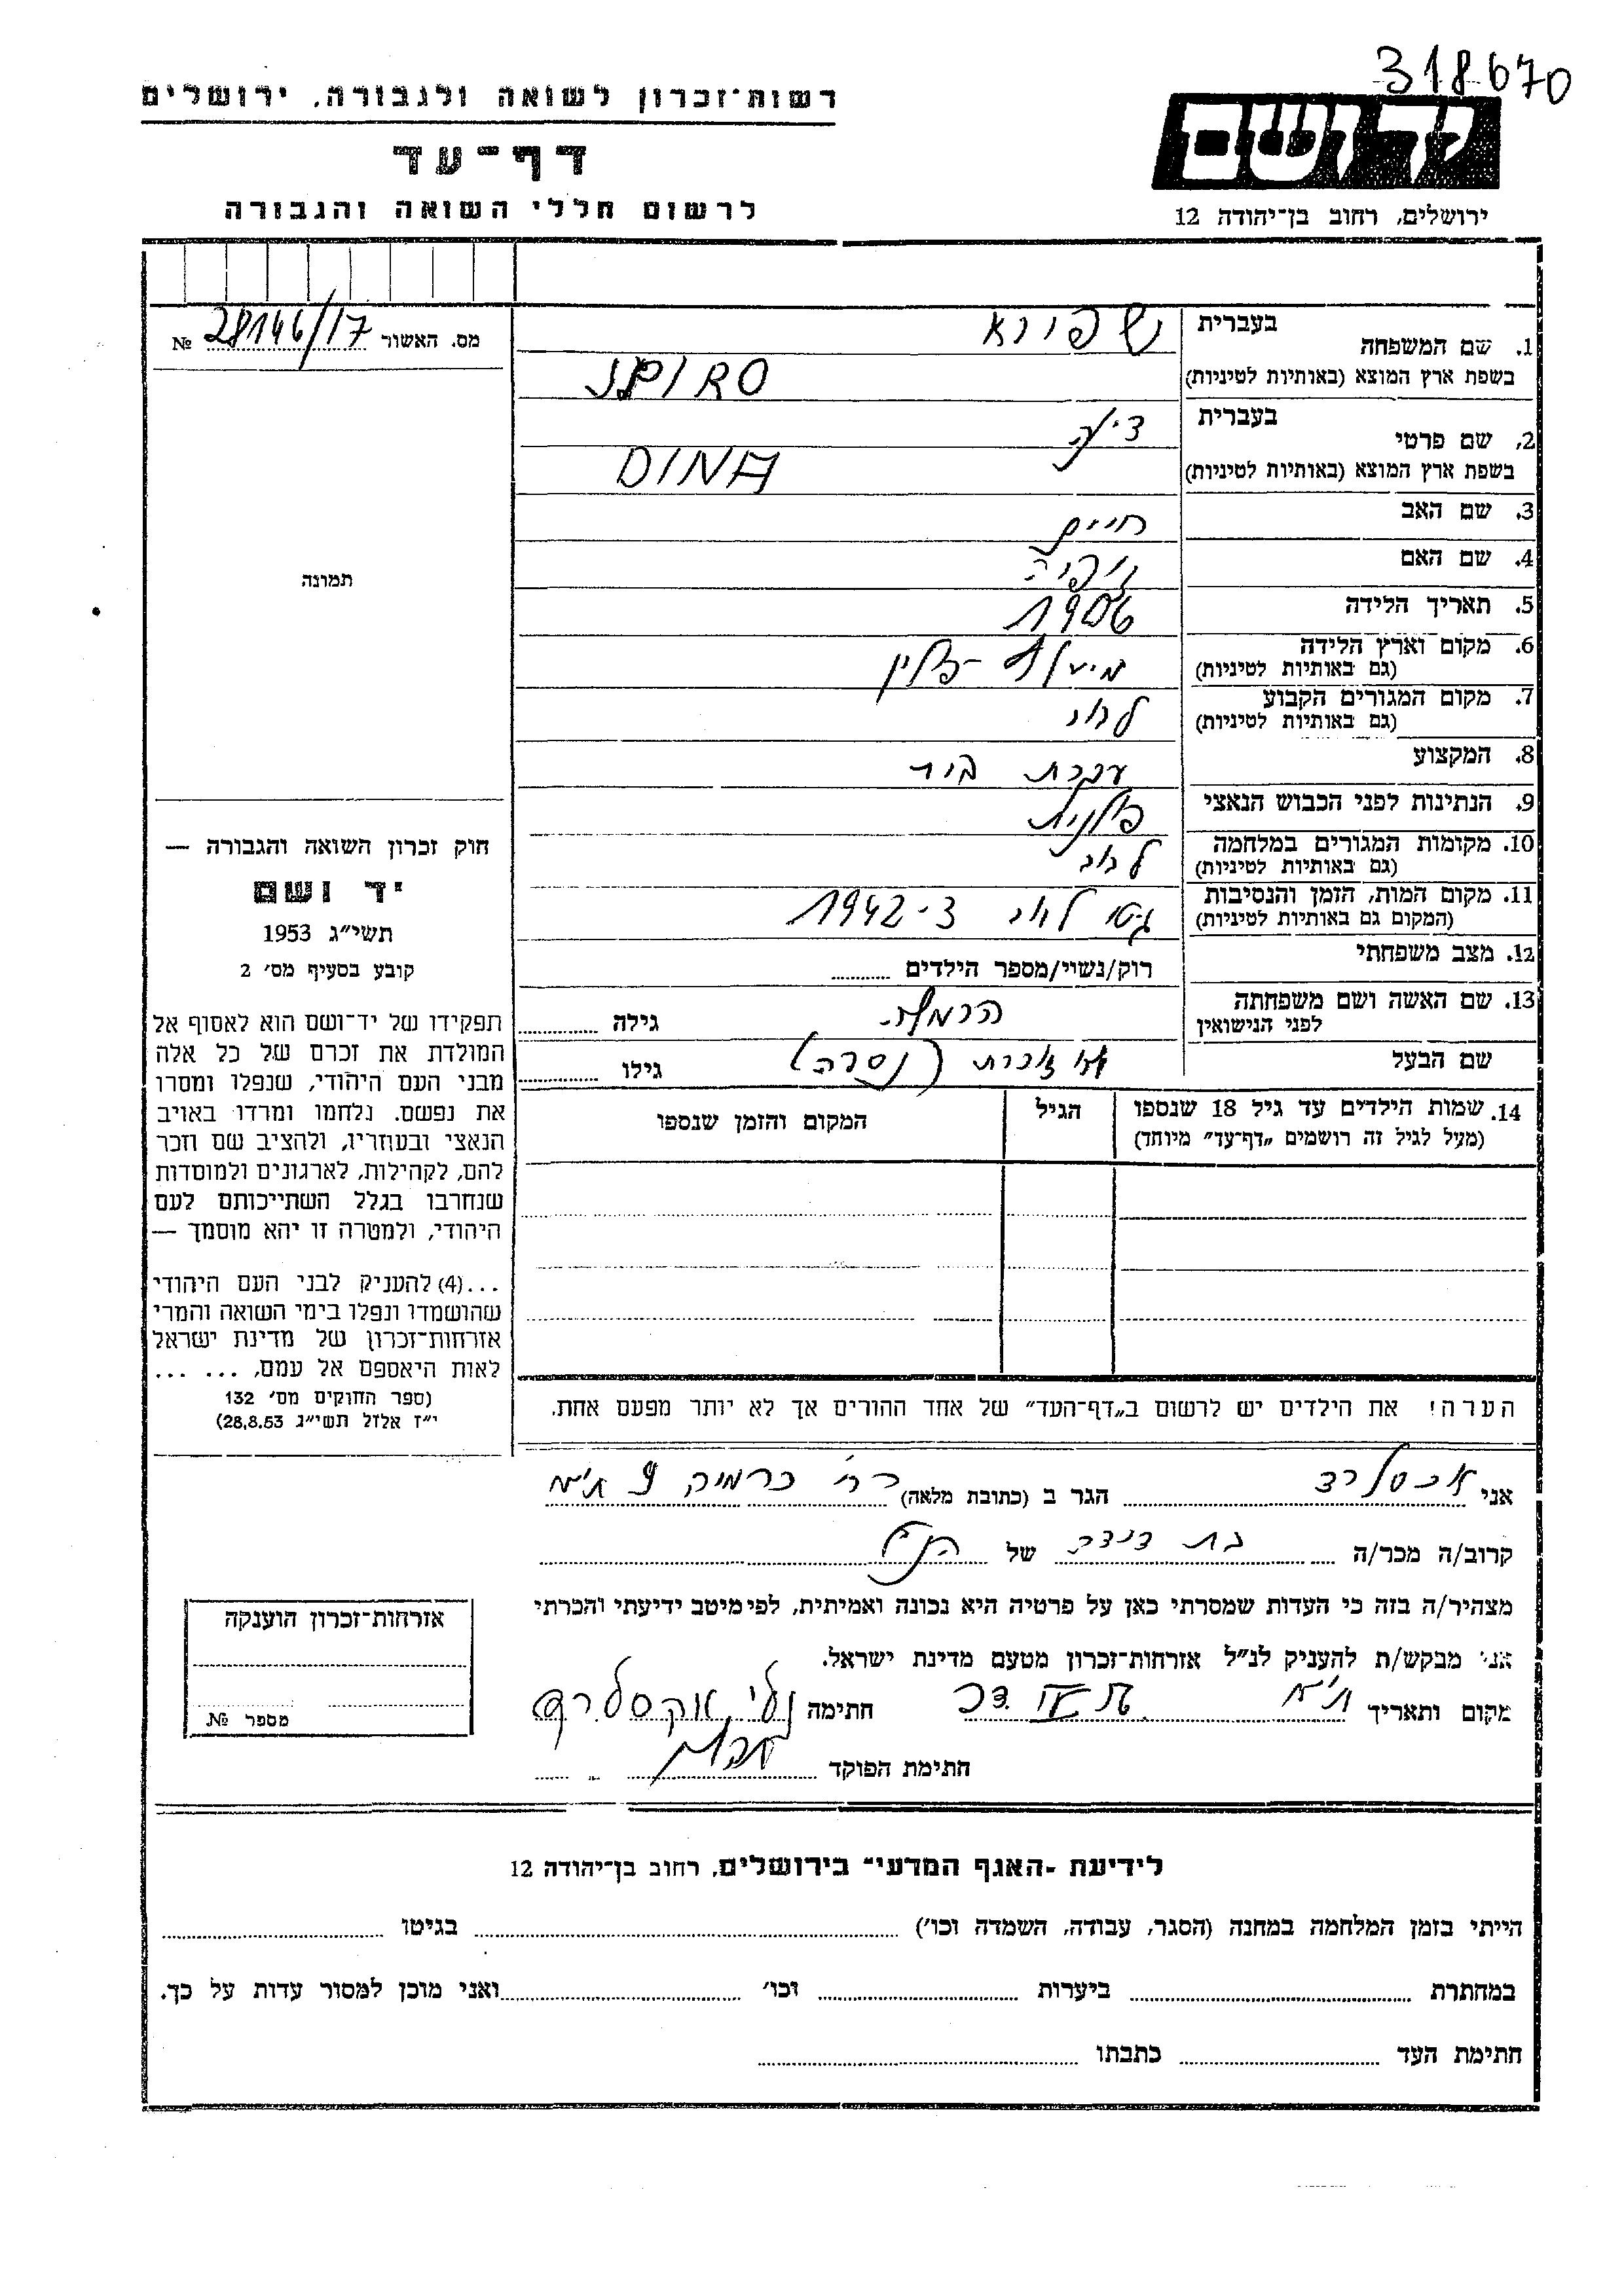 318670
רשות־זכרון לשואה ולגבורה, ירושלים
דף־עד
לרשום חללי השואה והגבורה
יד ושם
ירושלים, רחוב בן־יהודה 12
מס. האשור № 28146/17
1. שם המשפחה
בעברית שפירא
בשפת ארץ המוצא (באותיות לטיניות) SPIRO
2. שם פרטי
בעברית דינה
בשפת ארץ המוצא (באותיות לטיניות) DINA
3. שם האב חיים
4. שם האם
5. תאריך הלידה 1906
6. מקום וארץ הלידה
(גם באותיות לטיניות)
7. מקום המגורים הקבוע לבוב
(גם באותיות לטיניות)
8. המקצוע עקרת בית
9. הנתינות לפני הכבוש הנאצי פולנית
10. מקומות המגורים במלחמה לבוב
(גם באותיות לטיניות)
11. מקום המות, הזמן והנסיבות גיטו לבוב 1942-3
(המקום גם באותיות לטיניות)
12. מצב משפחתי רוק/נשוי/מספר הילדים
13. שם האשה ושם משפחתה גילה
לפני הנישואין
שם הבעל לא זוכרת (נספה) גילו
14. שמות הילדים עד גיל 18 שנספו הגיל המקום והזמן שנספו
(מעל לגיל זה רושמים „דף־עד" מיוחד)
הערה! את הילדים יש לרשום ב„דף־העד" של אחד ההורים אך לא יותר מפעם אחת.
תמונה
חוק זכרון השואה והגבורה —
יד ושם
תשי"ג 1953
קובע בסעיף מס׳ 2
תפקידו של יד־ושם הוא לאסוף אל
המולדת את זכרם של כל אלה
מבני העם היהודי, שנפלו ומסרו
את נפשם, נלחמו ומרדו באויב
הנאצי ובעוזריו, ולהציב שם וזכר
להם, לקהילות, לארגונים ולמוסדות
שנחרבו בגלל השתייכותם לעם
היהודי, ולמטרה זו יהא מוסמך —
...(4) להעניק לבני העם היהודי
שהושמדו ונפלו בימי השואה והמרי
אזרחות־זכרון של מדינת ישראל
לאות היאספם אל עמם, ... ...
(ספר החוקים מס׳ 132
י"ז אלול תשי"ג 28.8.53)
אני אכסלרד הגר ב (כתובת מלאה) רח׳ כרמיה 9 ת"א
קרוב/ה מכר/ה בת דודה של הנ"ל
מצהיר/ה בזה כי העדות שמסרתי כאן על פרטיה היא נכונה ואמיתית, לפי מיטב ידיעתי והכרתי
אני מבקש/ת להעניק לנ"ל אזרחות־זכרון מטעם מדינת ישראל.
מקום ותאריך ת"א חתימה אקסלרד
חתימת הפוקד
אזרחות־זכרון הוענקה
מספר №
לידיעת ־האגף המדעי־ בירושלים, רחוב בן־יהודה 12
הייתי בזמן המלחמה במחנה (הסגר, עבודה, השמדה וכו׳) בגיטו
במחתרת ביערות וכו׳ ואני מוכן למסור עדות על כך.
חתימת העד כתבתו